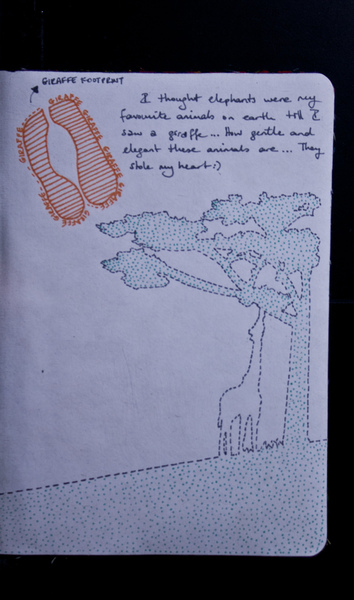 GIRAFFE FOOTPRINT
GIRAFFE GIRAFFE GIRAFFE GIRAFFE
GIRAFFE
I thought elephants were my
favourite animals on earth till I
saw a giraffe... How gentle and
elegant these animals are... They
stole my heart :)